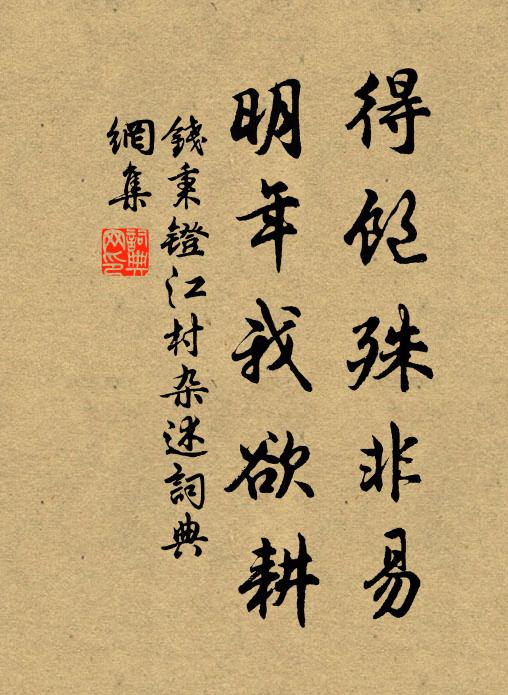 得飽殊非易
明年我欲耕
錢秉鐙江村杂述詞典
網集
詞典
网印